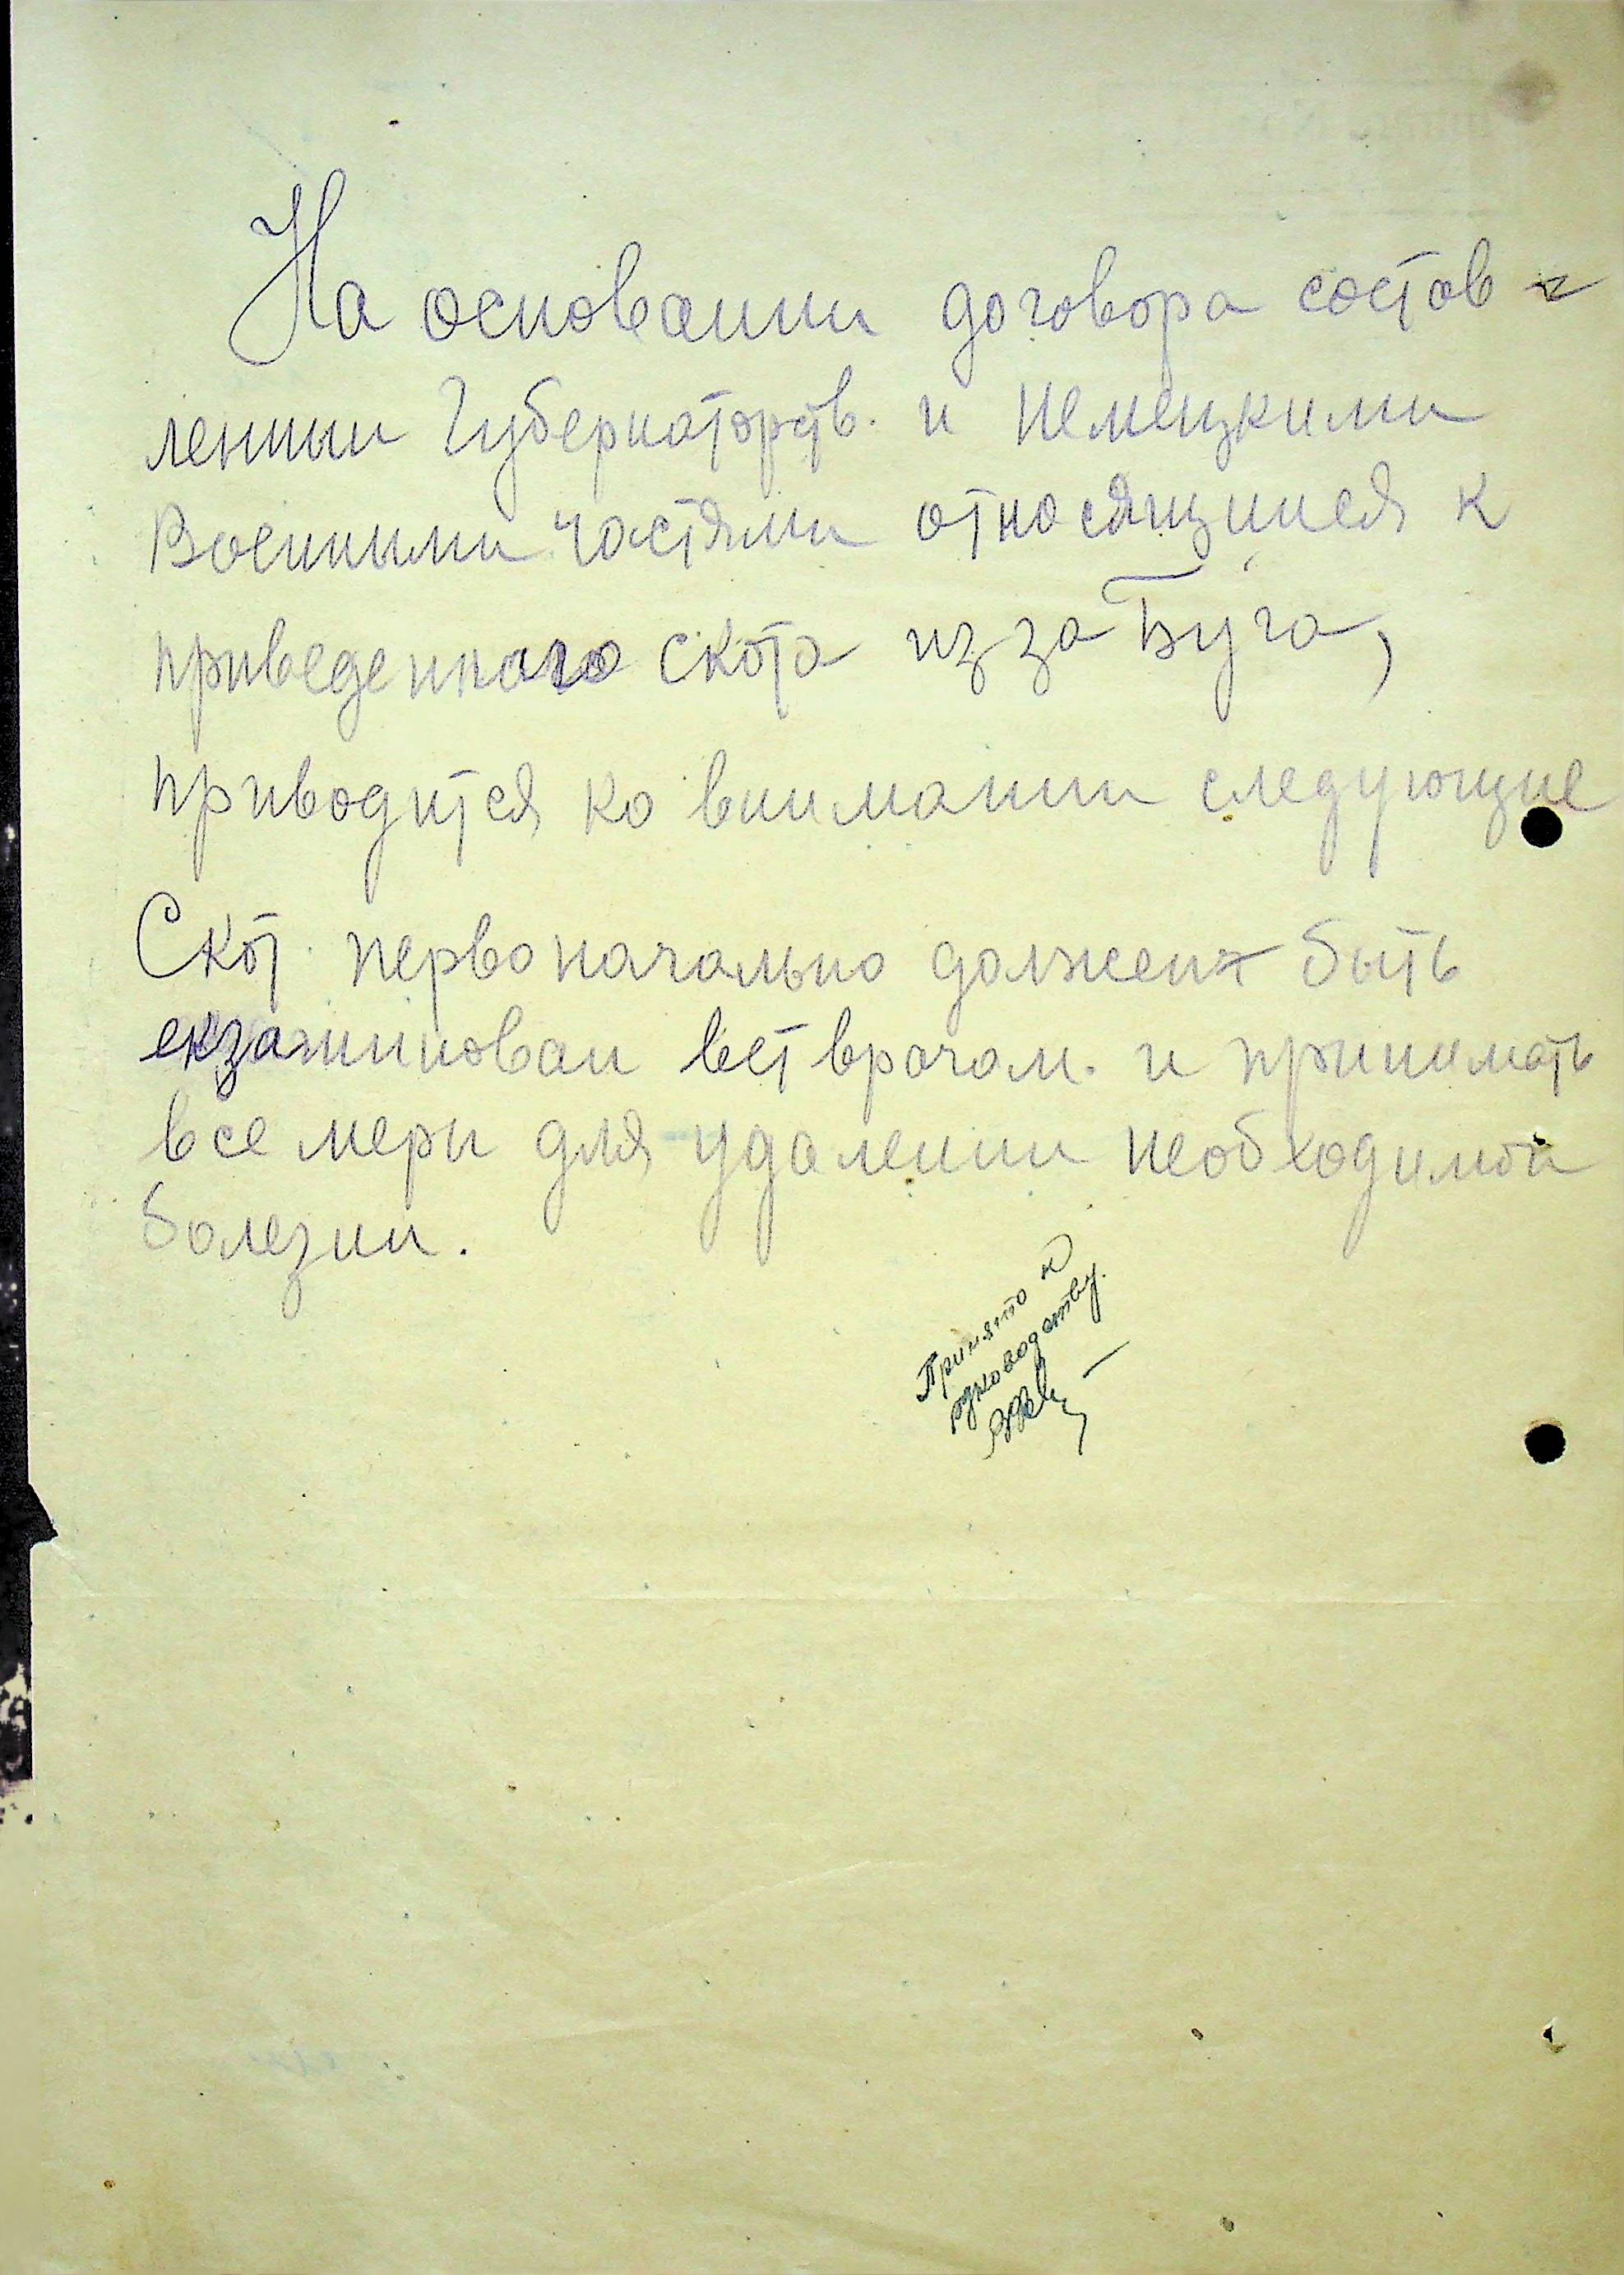 На основании договора состав-
лении Губернаторств. и немецкими
Военными частями относящиися к
приведенного скота из за Буга,
приводится ко внимании следующие
Скот первоначально должен быть
екзаминован вет врачом. и принимать
все мери для удалении необходимой
болезни.
Принято к
руководству.